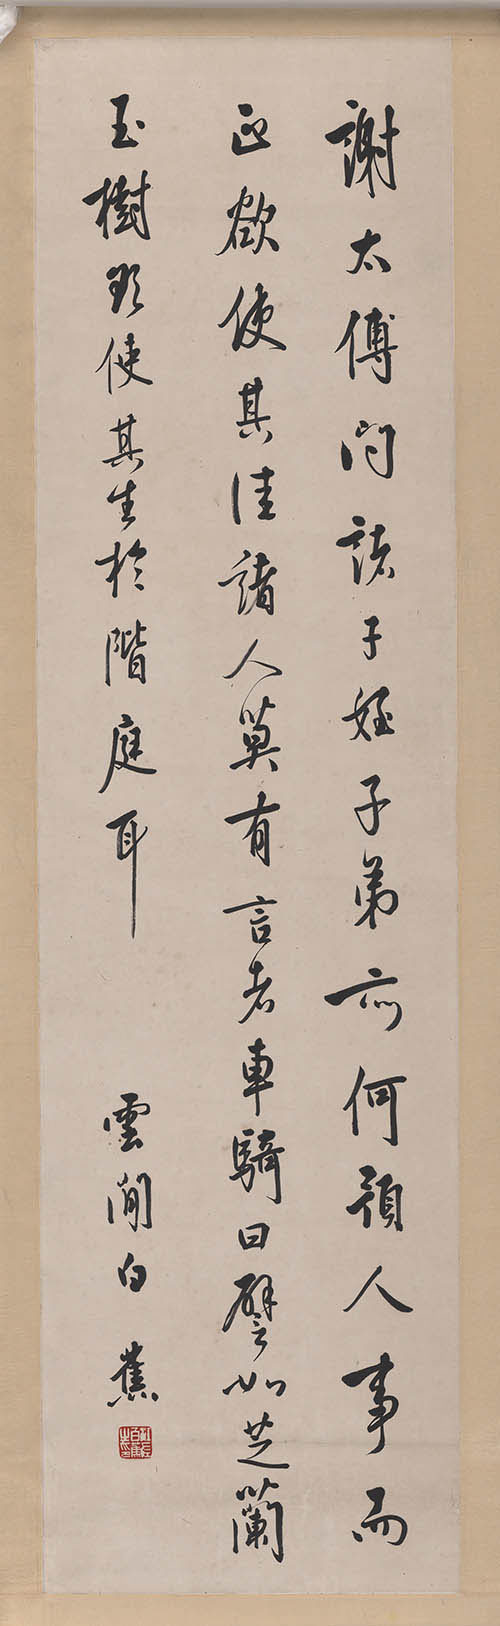 謝太傅问諸子姪子弟亦何預人事而
正欲使其佳諸人莫有言者車騎曰譬如芝蘭
玉樹欲使其生於階庭耳
雲间白蕉